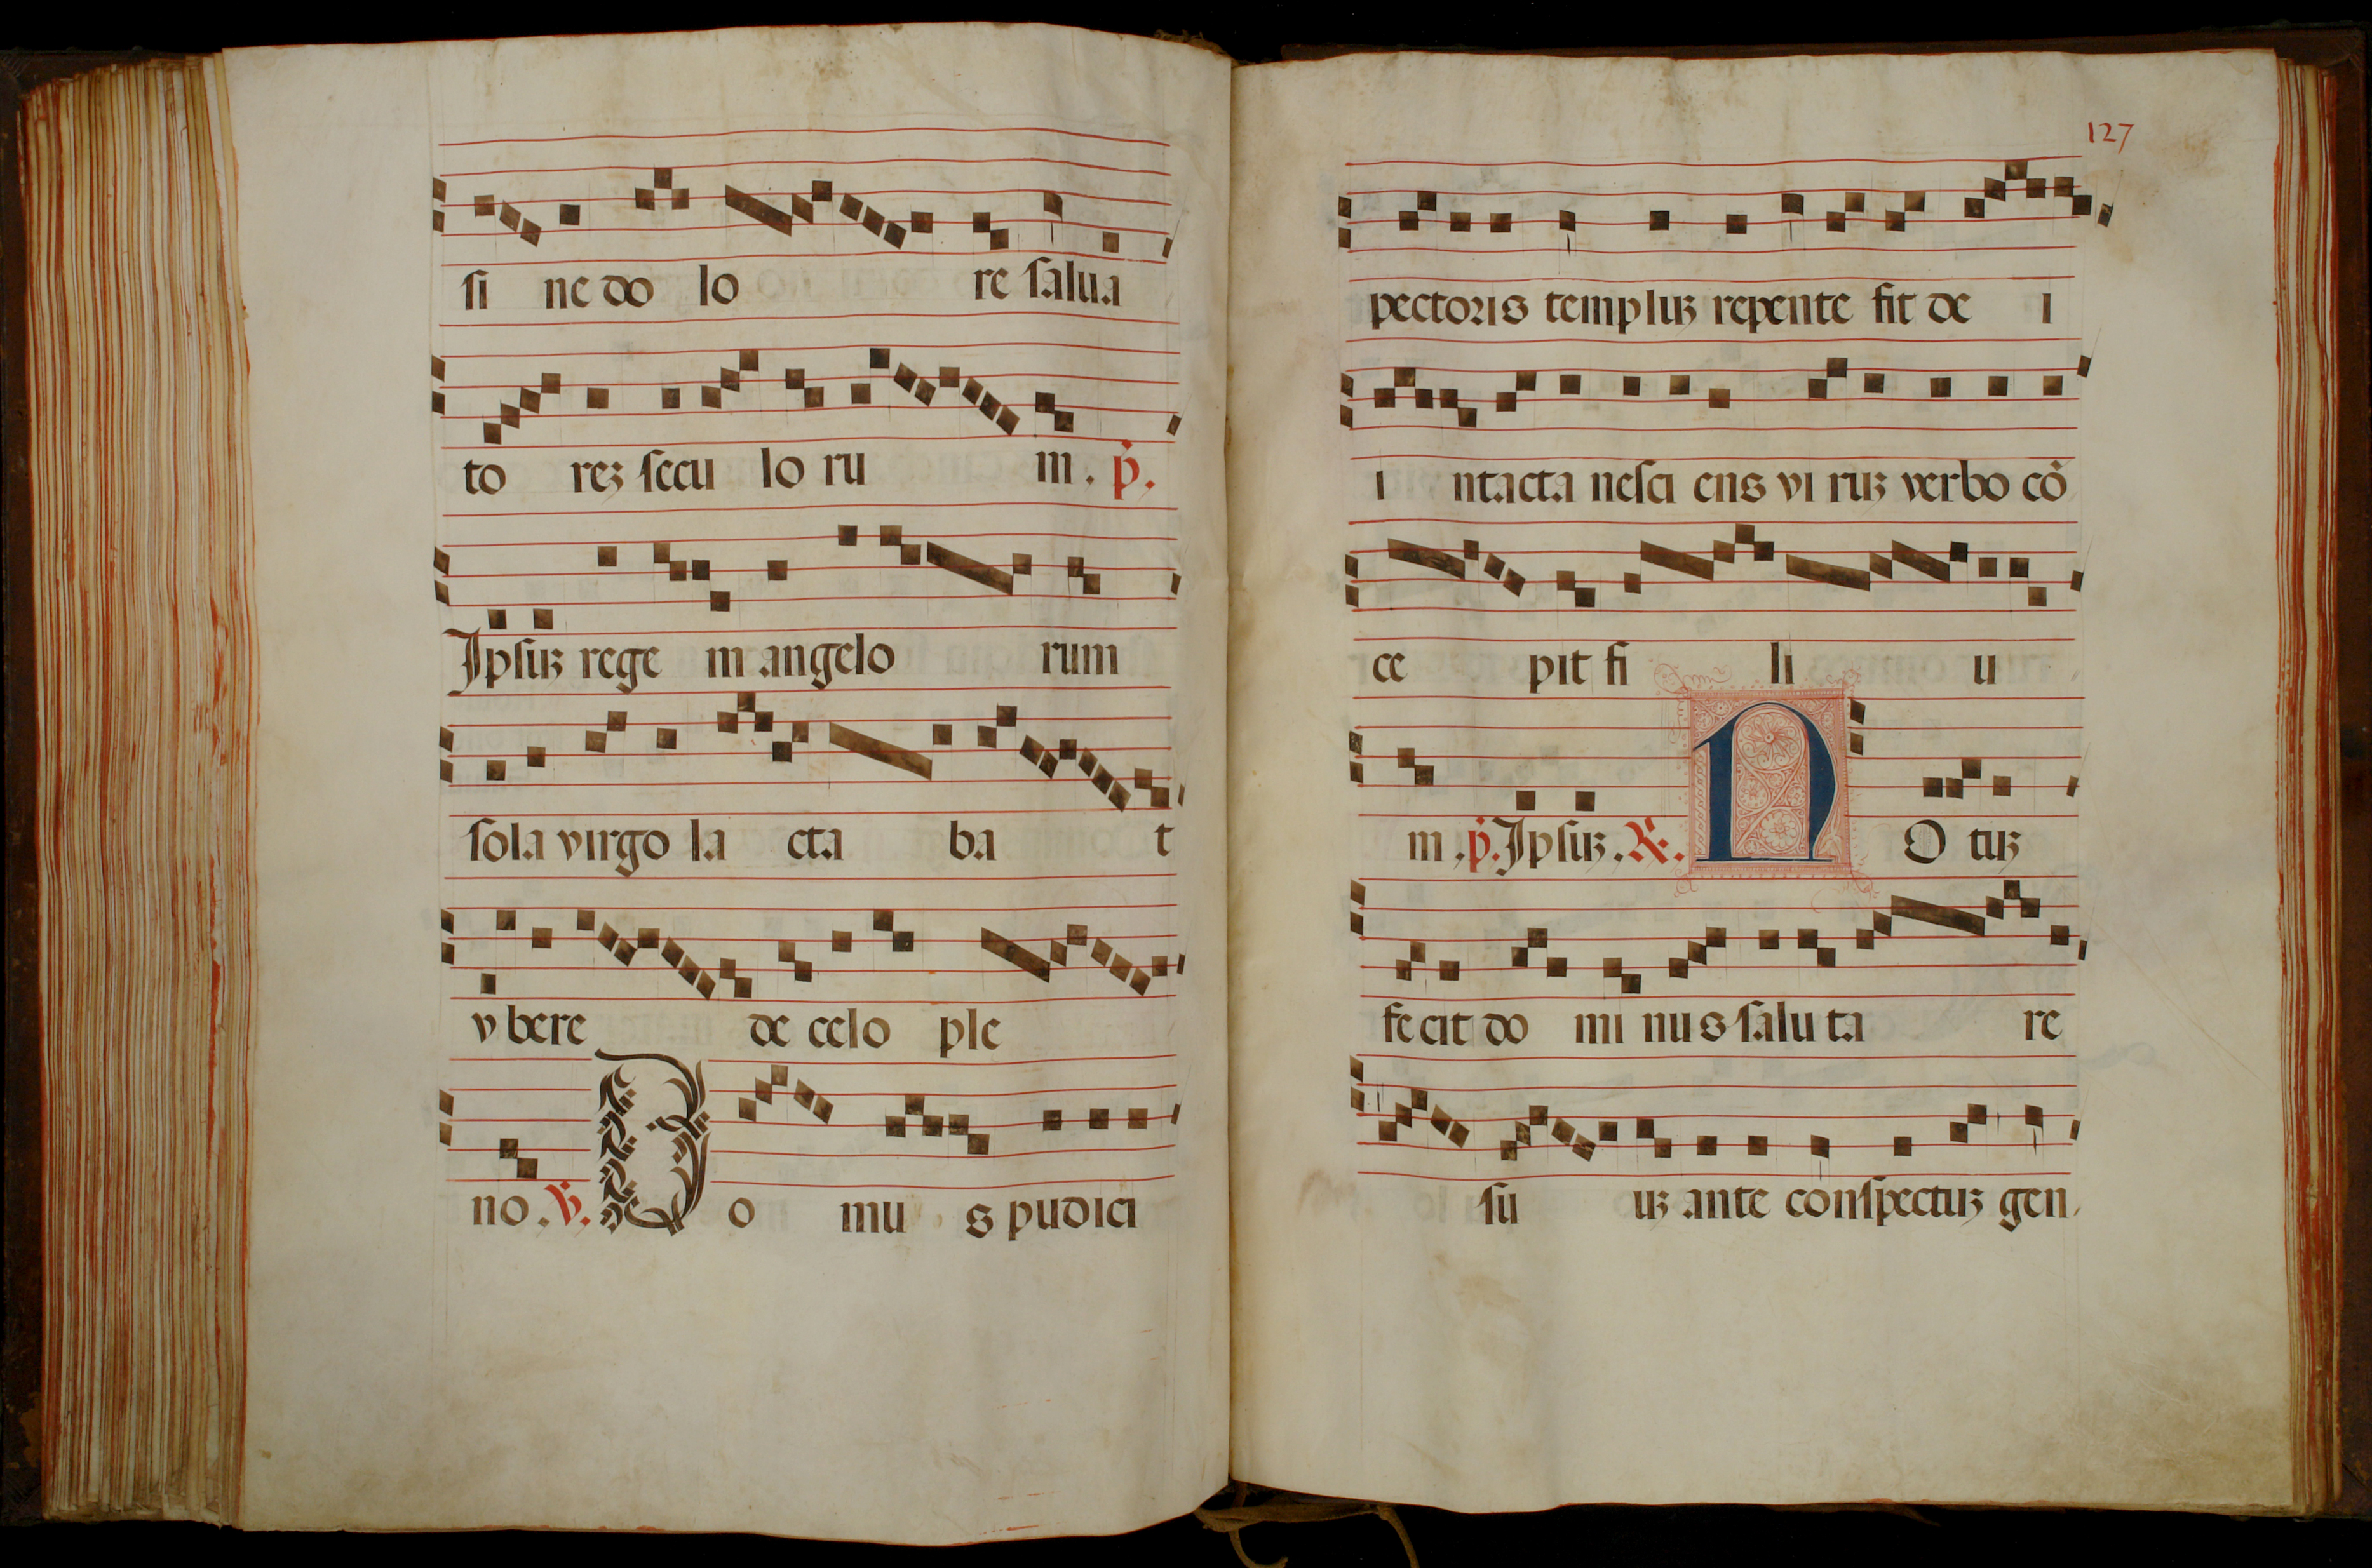 si ne do lo re salua
to reʒ secu lo ru m. p̄.
Ipsuʒ rege m angelo rum
sola virgo la cta ba t
vbere de celo ple
no. ꝟ. D o mu s pudici
127
pectoris templuʒ repente fit de i
i ntacta nesci ens vi ruʒ verbo cō
ce pit fi li u
m. p̄. Ipsuʒ. ℟. N O tuʒ
fe cit do mi nus salu ta re
su uʒ ante conspectuʒ gen